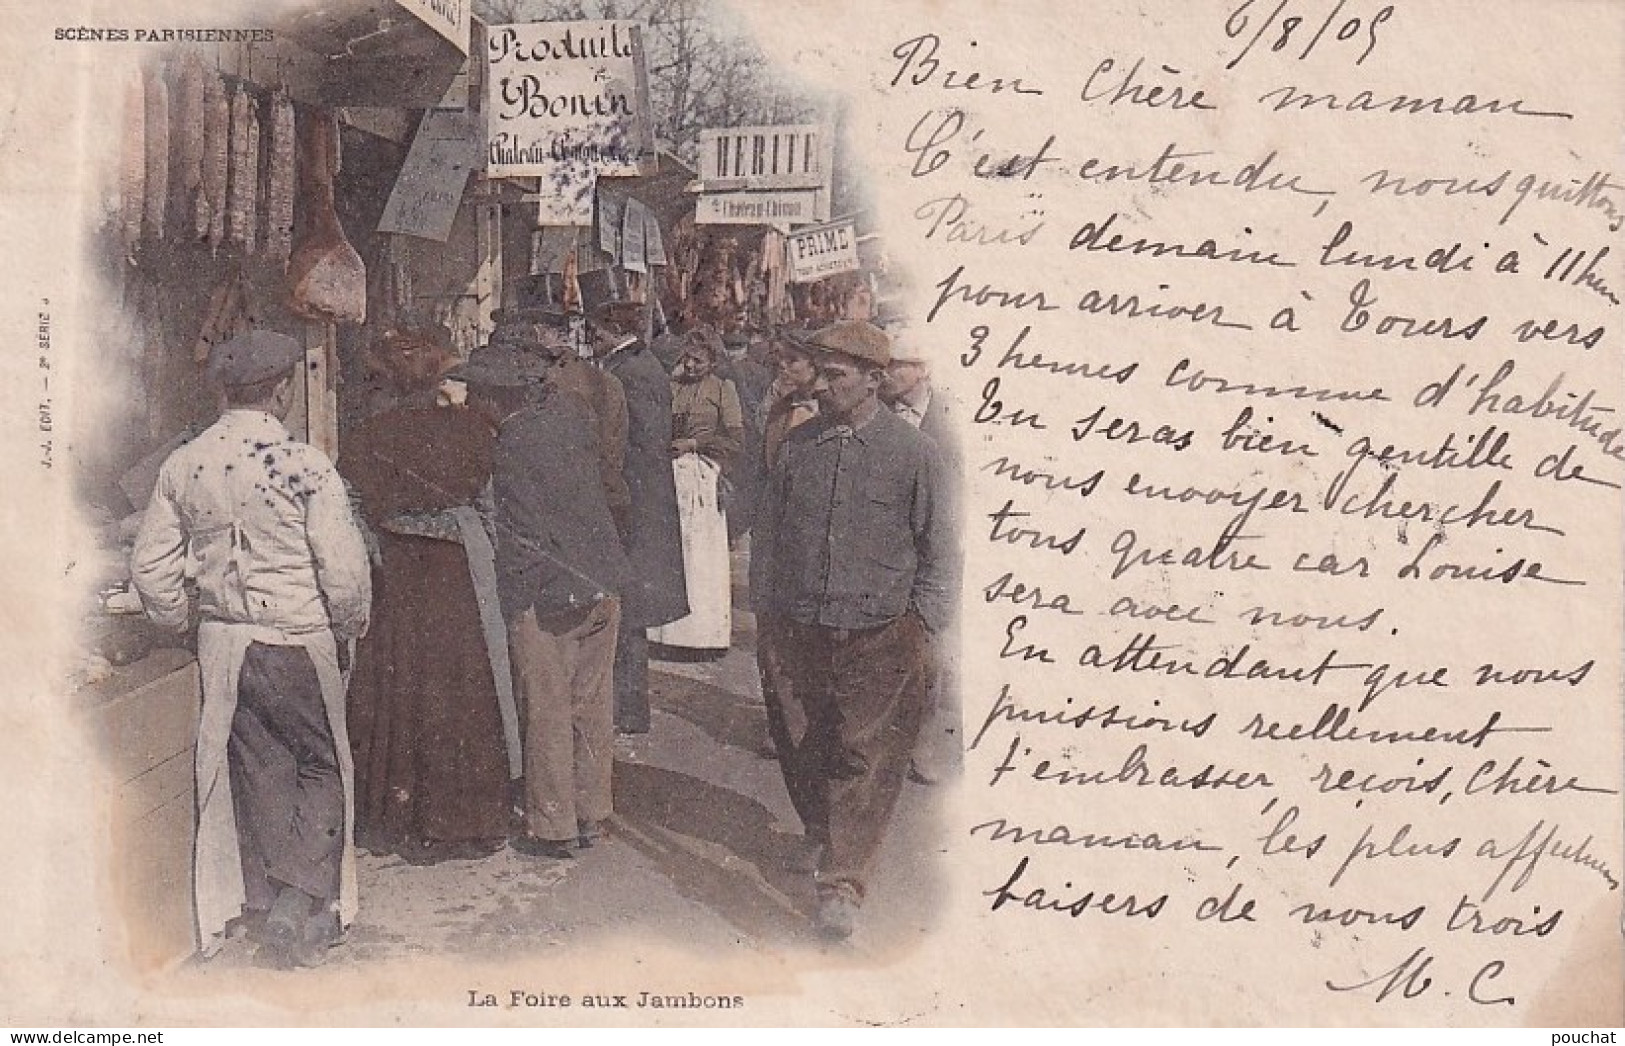 SCÈNES PARISIENNES
Produits
Bonin
HÉRITÉ
Château-Chinon
PRIME
J. J. EDIT. — 2e SÉRIE
6/8/05
Bien Chère maman
C'est entendu, nous quittons
Paris demain lundi à 11 heu
pour arriver à Tours vers
3 heures comme d'habitude
Tu seras bien gentille de
nous envoyer chercher
tous quatre car Louise
sera avec nous.
En attendant que nous
puissions reellement
t'embrasser, reçois, Chère
maman, les plus affectueux
baisers de nous trois
M. C.
La Foire aux Jambons
pouchat